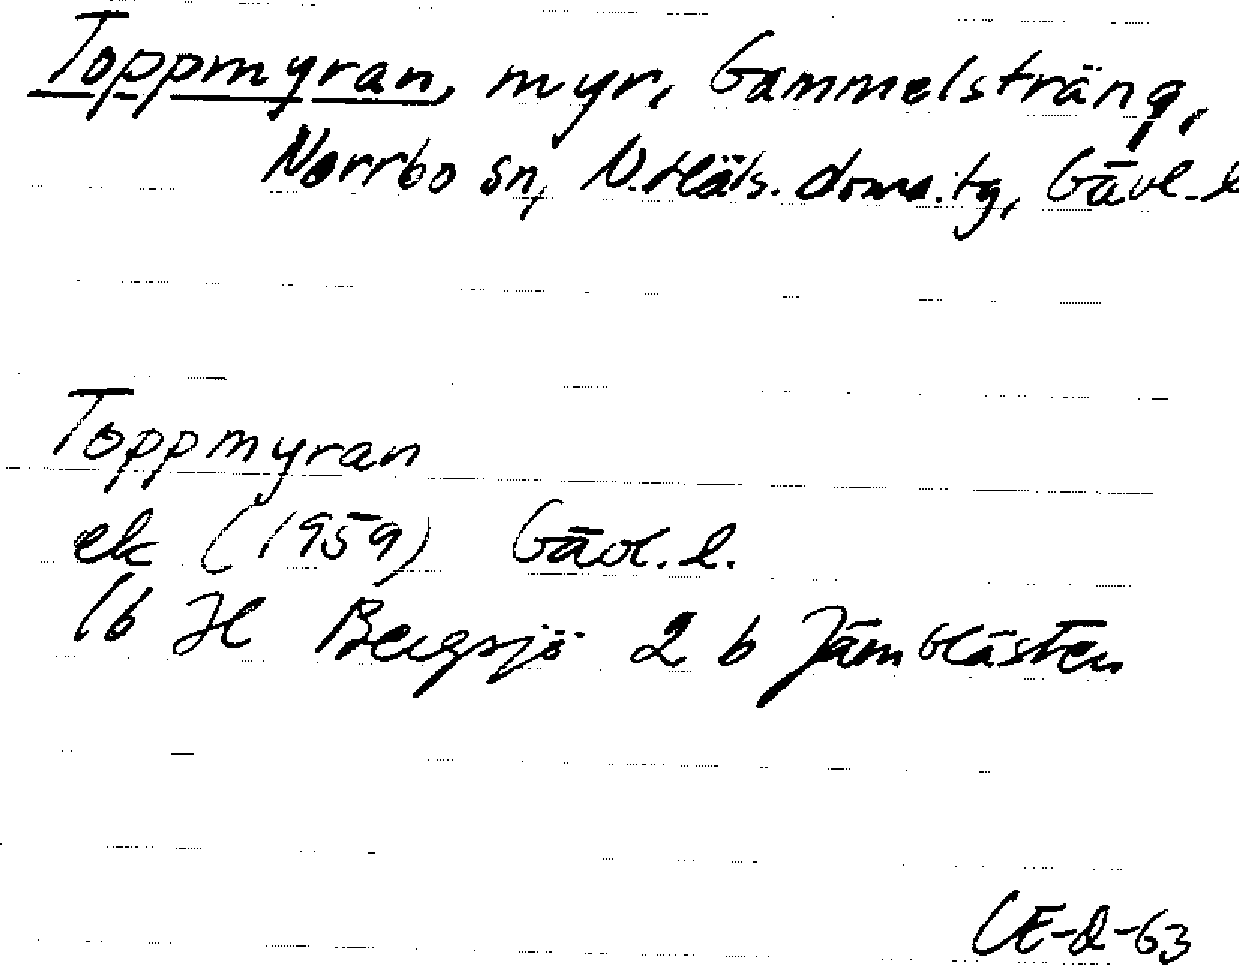 Toppmyran, myr, Gammelsträng,
Norrbo sn, N.Häls. doms.tg, Gävl. l
Toppmyran
ek (1959) Gävl. l.
16 H Bergsjö 2 b Järnblästen
CE-2-63